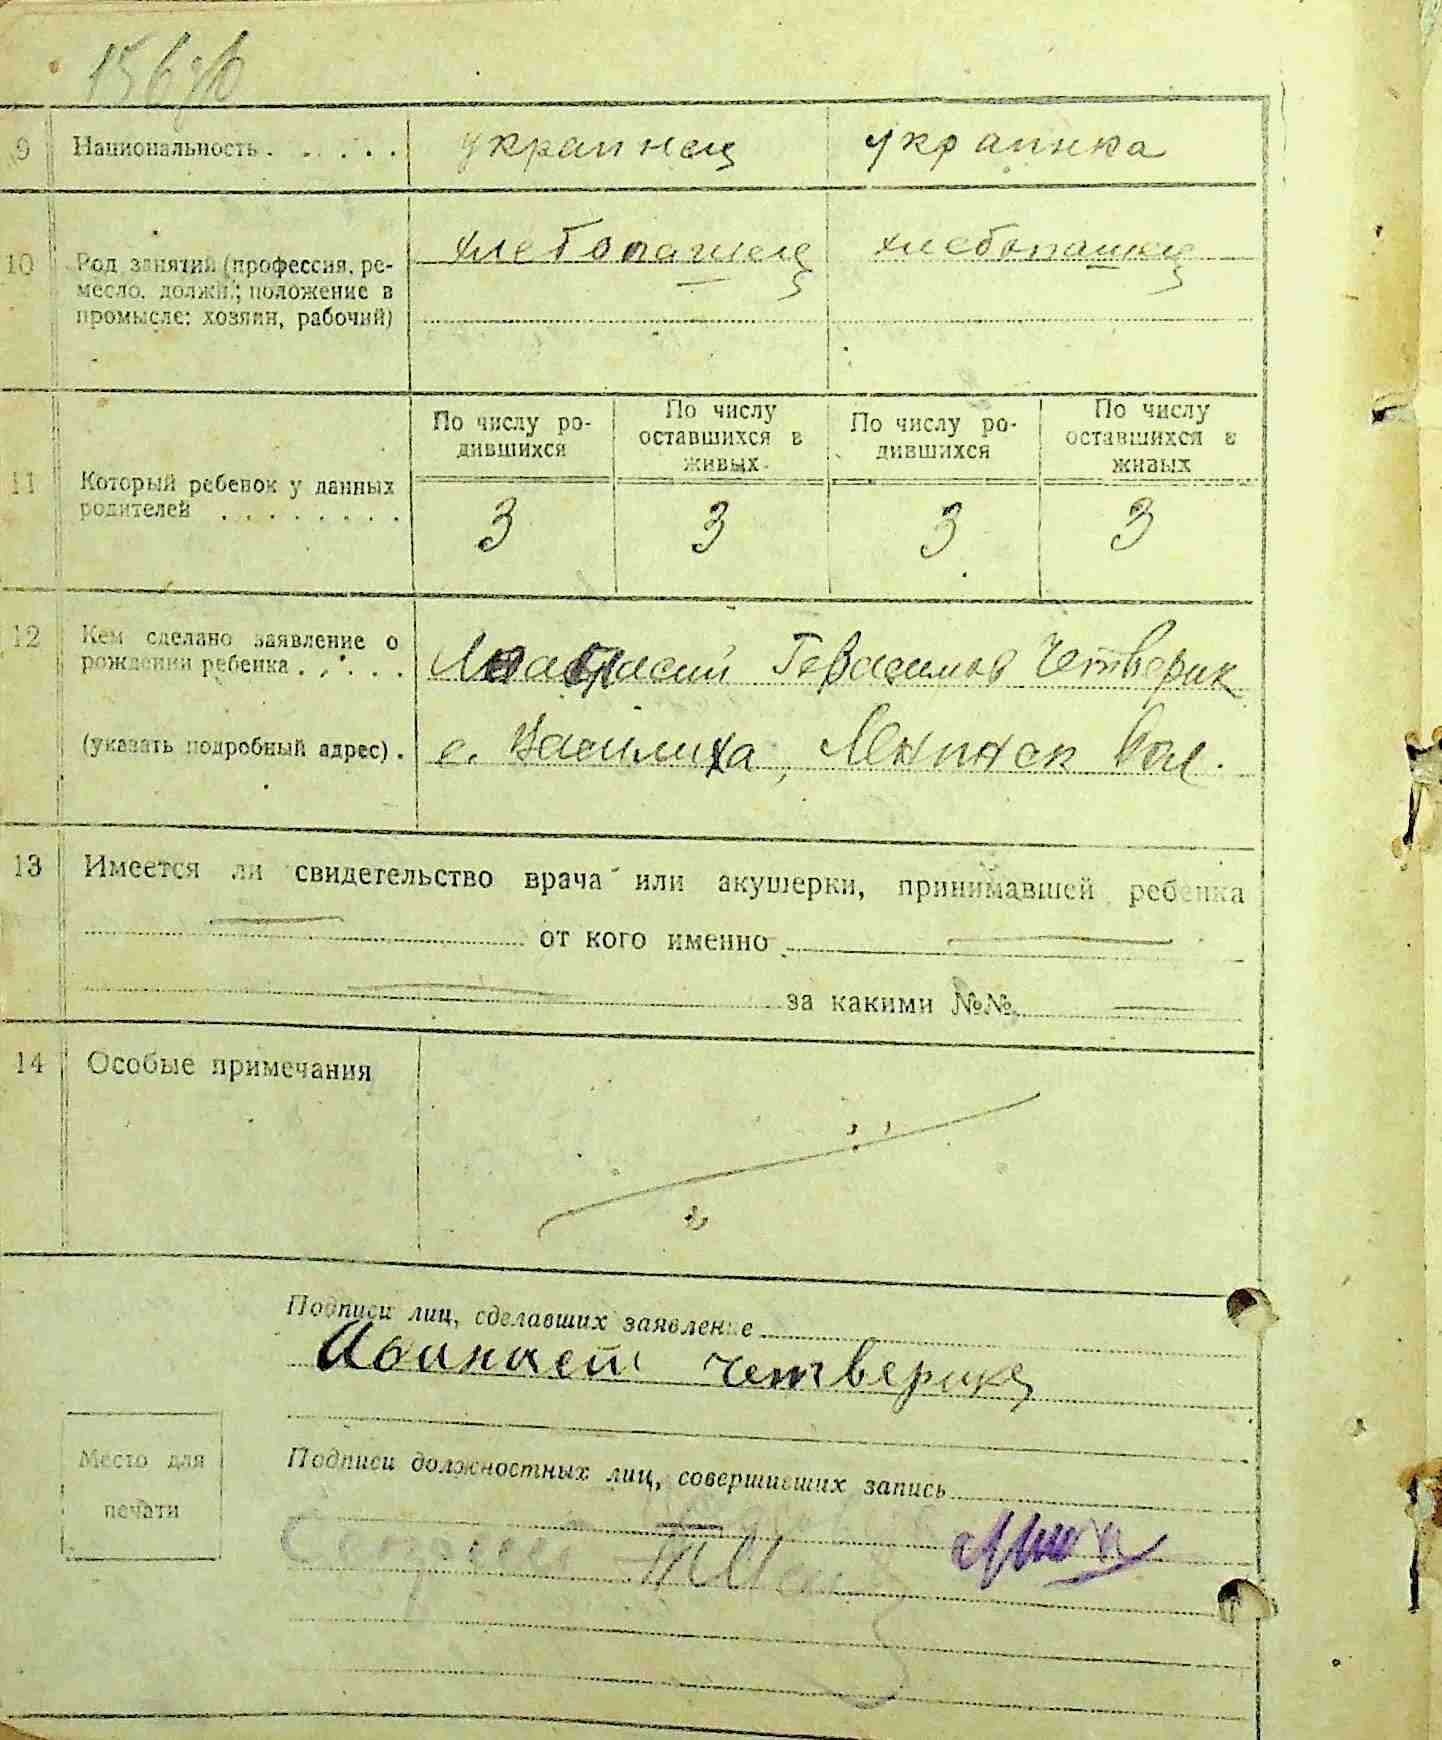 9 Национальность . . . . . украинец украинка
10 Род занятий (профессия, ре-
месло, должн.; положение в
промысле: хозяин, рабочий)
хлебопашец хлебопашец
По числу ро-
дившихся
По числу
оставшихся в
живых
По числу ро-
дившихся
По числу
оставшихся в
живых
11 Который ребенок у данных
родителей . . . . . . . .
3 3 3 3
12 Кем сделано заявление о
рождении ребенка . . . . .
Герасимов Четверик
(указать подробный адрес) .
с. Василиха, Ленинск вол.
13 Имеется ли свидетельство врача или акушерки, принимавшей ребенка
от кого именно
за какими №№
14 Особые примечания
Подписи лиц, сделавших заявление
четверик
Подписи должностных лиц, совершивших запись
Место для
печати